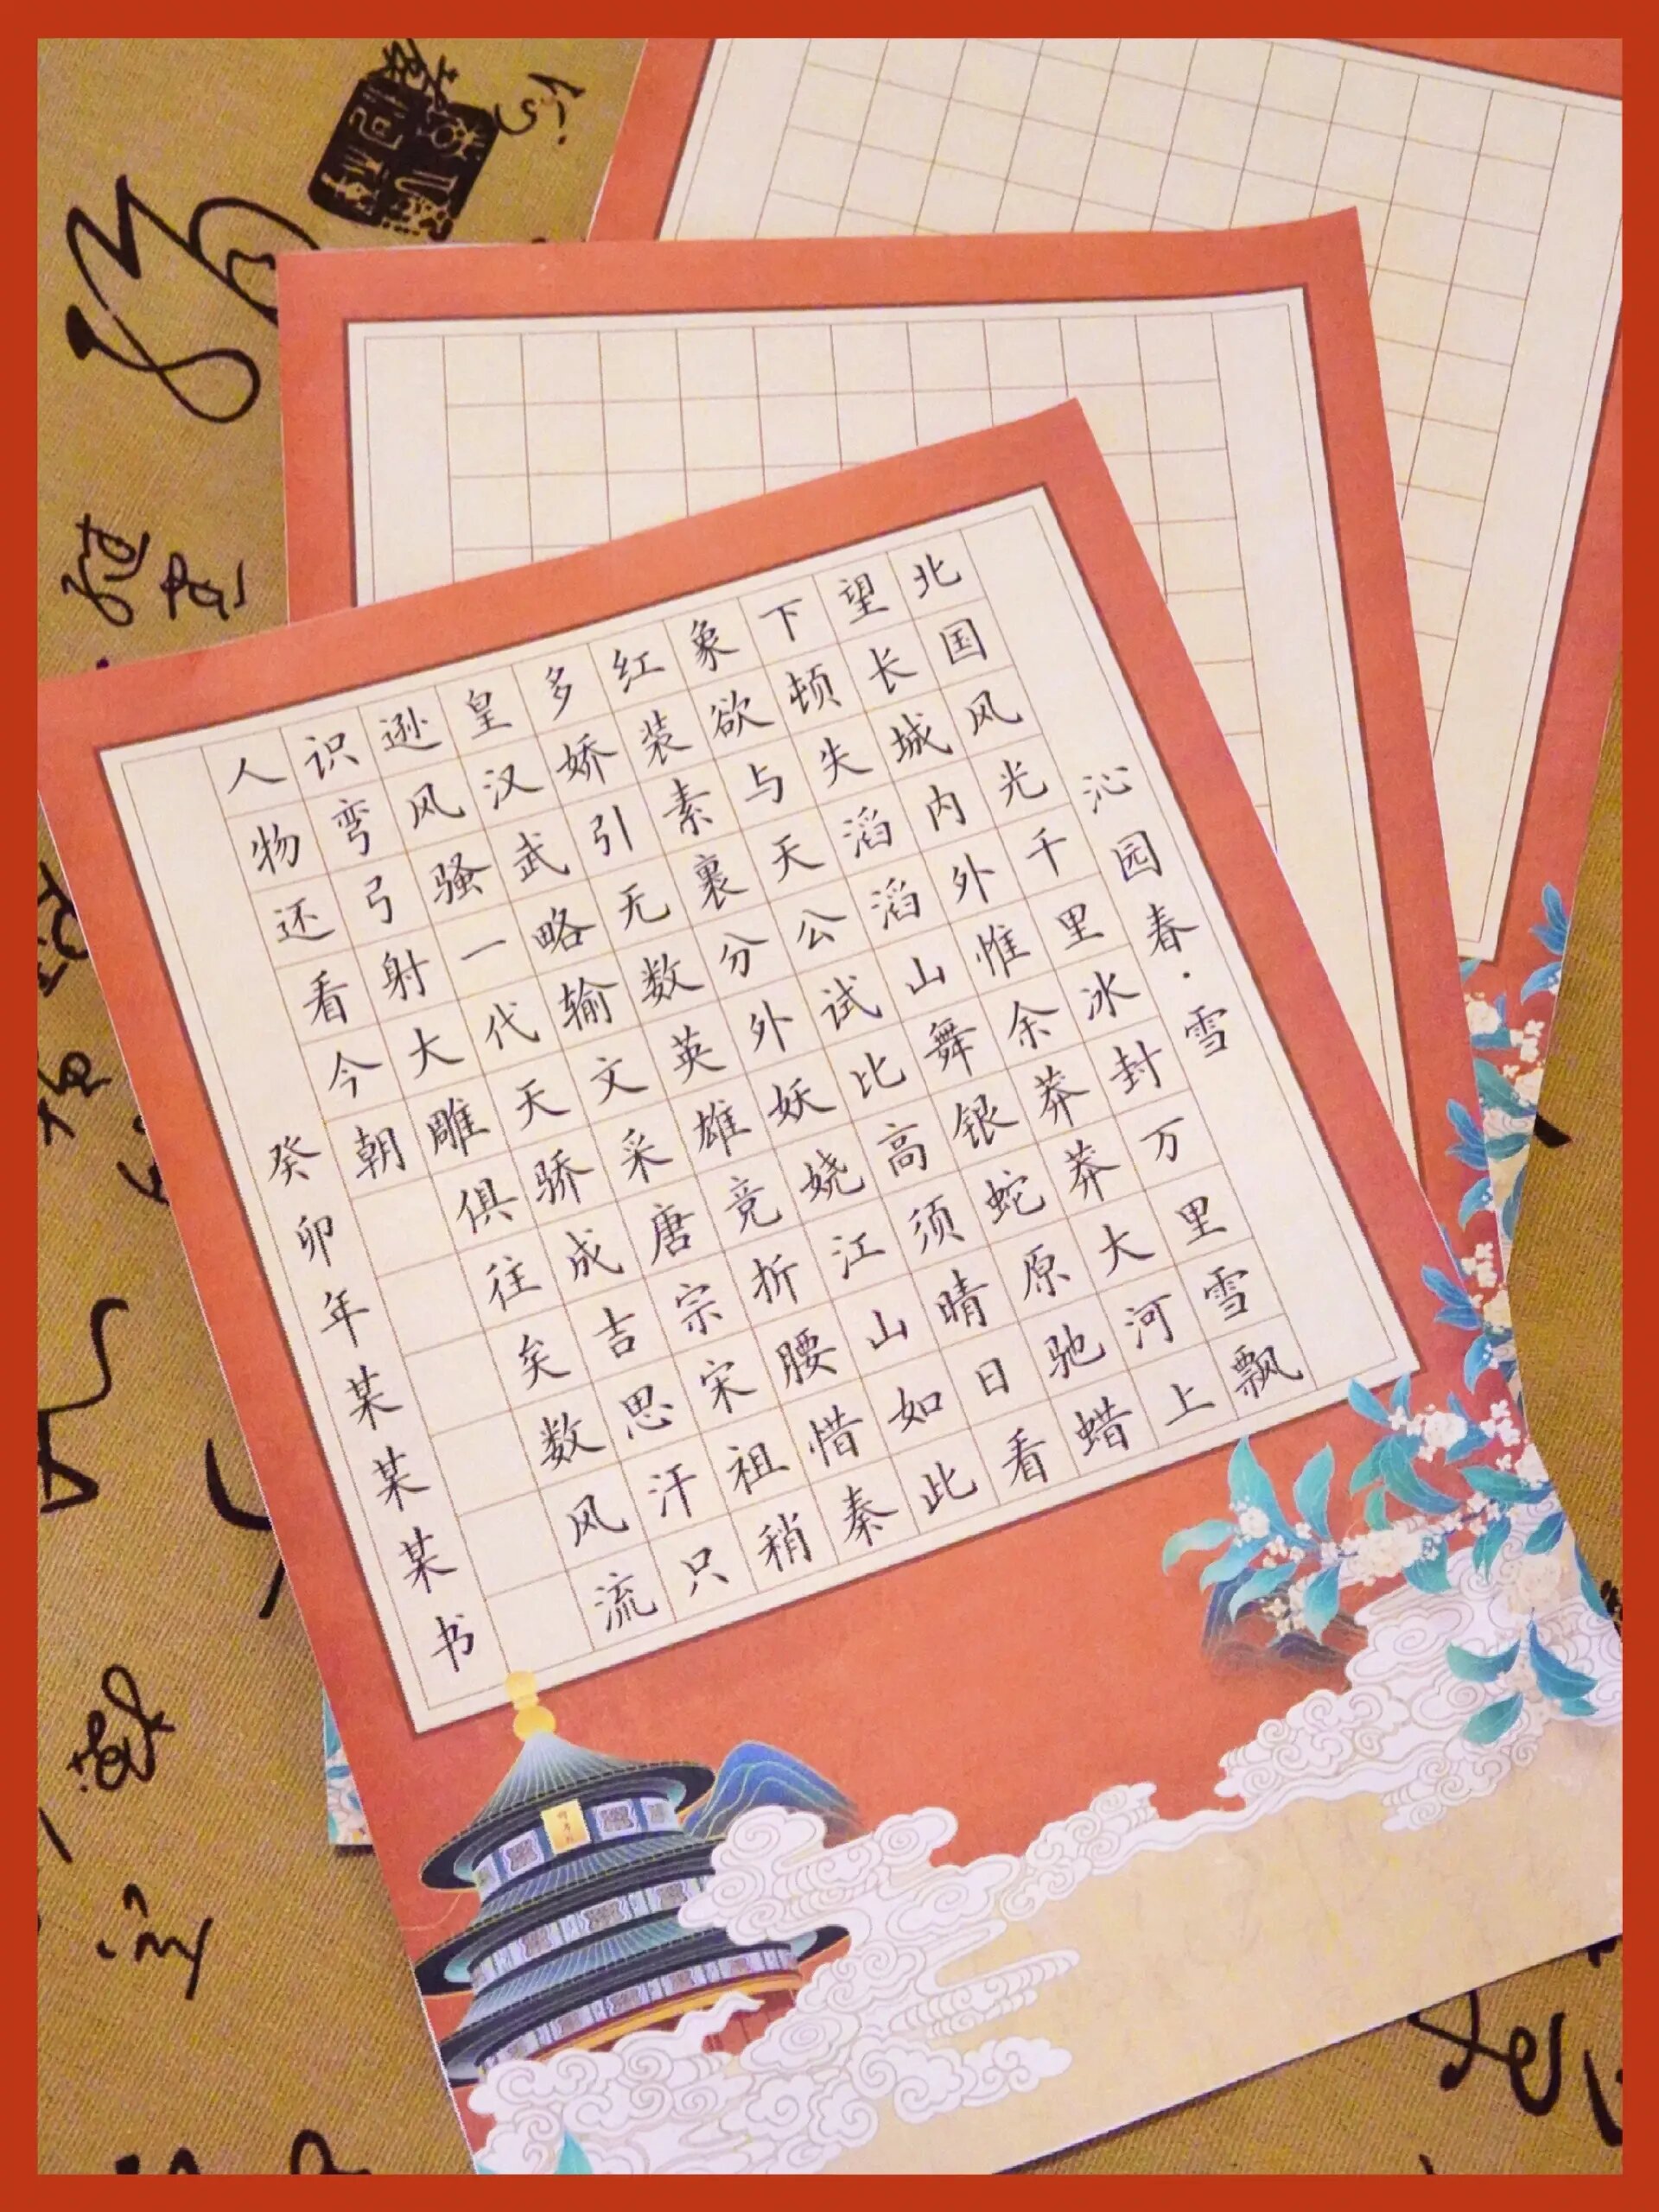 沁园春·雪
北国风光千里冰封万里雪飘
望长城内外惟余莽莽大河上
下顿失滔滔山舞银蛇原驰蜡
象欲与天公试比高须晴日看
红装素裹分外妖娆江山如此
多娇引无数英雄竞折腰惜秦
皇汉武略输文采唐宗宋祖稍
逊风骚一代天骄成吉思汗只
识弯弓射大雕俱往矣数风流
人物还看今朝
癸卯年某某某书